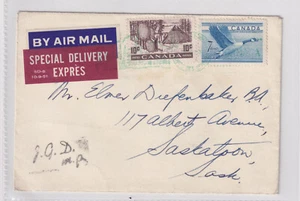 BY AIR MAIL
SPECIAL DELIVERY
EXPRÈS
10¢ 10¢
CANADA
Mr. Elmer Diefenbaker B.A.,
117 Albert Avenue,
Saskatoon,
Sask.
J.G.D.
M.P.